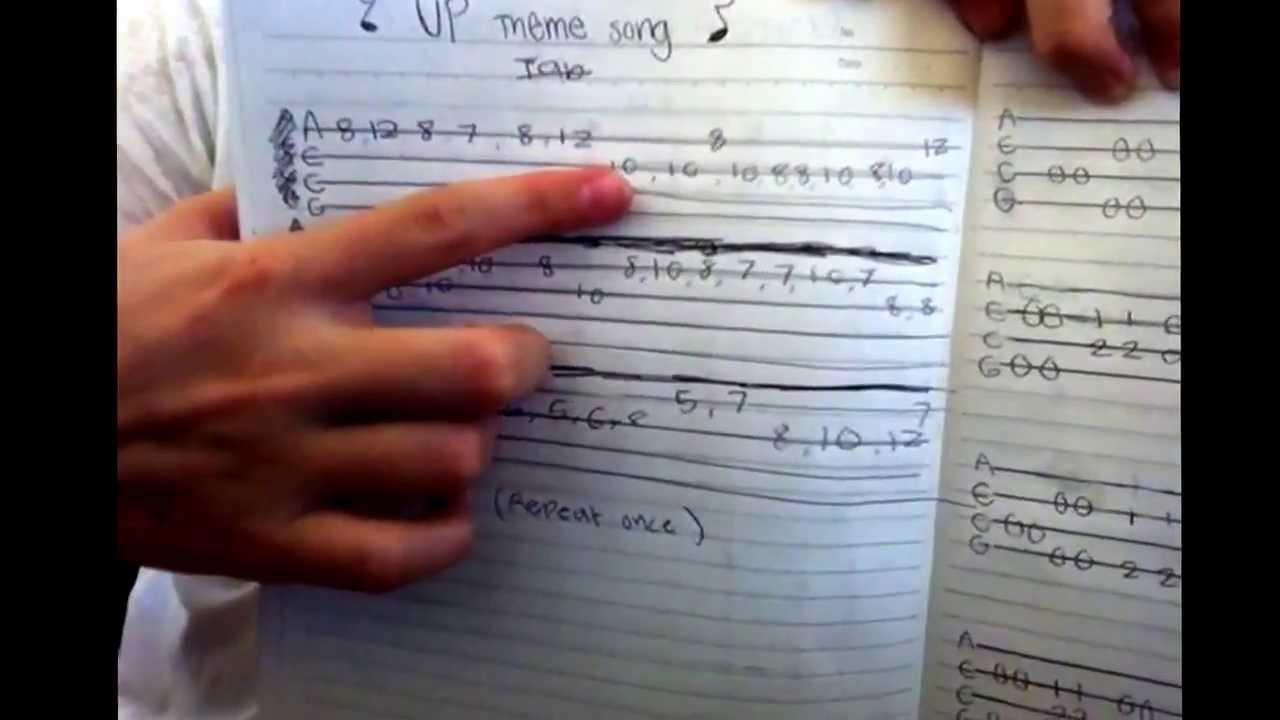 ♪ UP meme song ♪
Tab
A 8 12 8 7 8, 12 8 12
E 10, 10, 10, 8 8, 10 8, 10
C
G
10 8 8, 10, 8, 7, 7, 10, 7
10 10 8, 8
5, 7 7
5, 6, 8 8, 10, 12
(Repeat once)
A
E 0 0
C 0 0
G 0 0
A
E 0 0 1 1
C 2 2 0
G 0 0
A
E 0 0 1 1
C 0 0
G 0 0 2 2
A
E 0 0 1 1 0 0
C 2 2
G